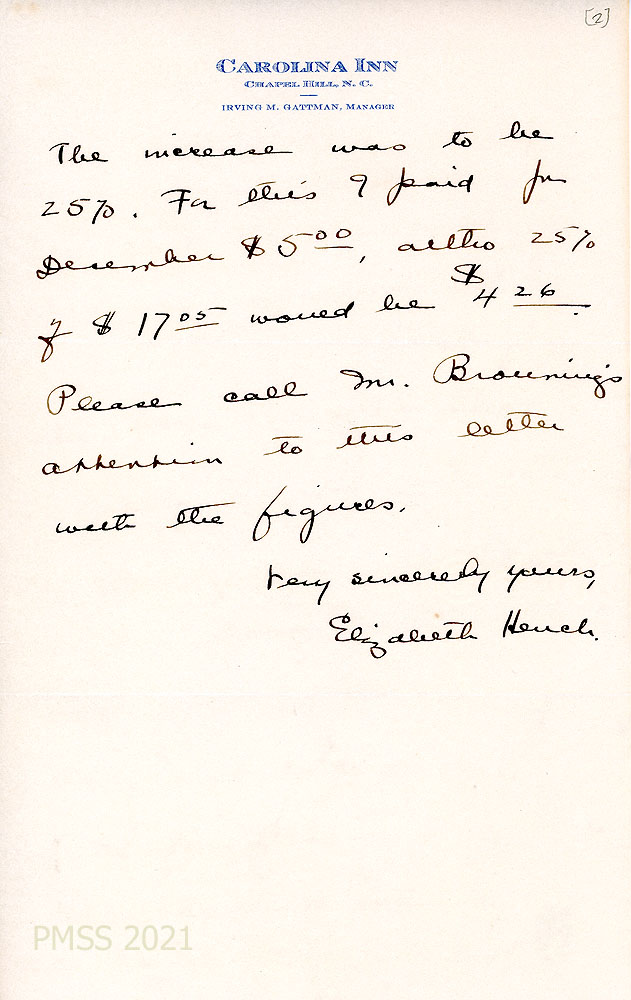 [2]
CAROLINA INN
CHAPEL HILL, N. C.
IRVING M. GATTMAN, MANAGER
The increase was to be
25%. For this I paid for
December $5.00, altho 25%
of $17.05 would be $4.26.
Please call Mr. Browning's
attention to this letter
with the figures.
Very sincerely yours,
Elizabeth Hench.
PMSS 2021